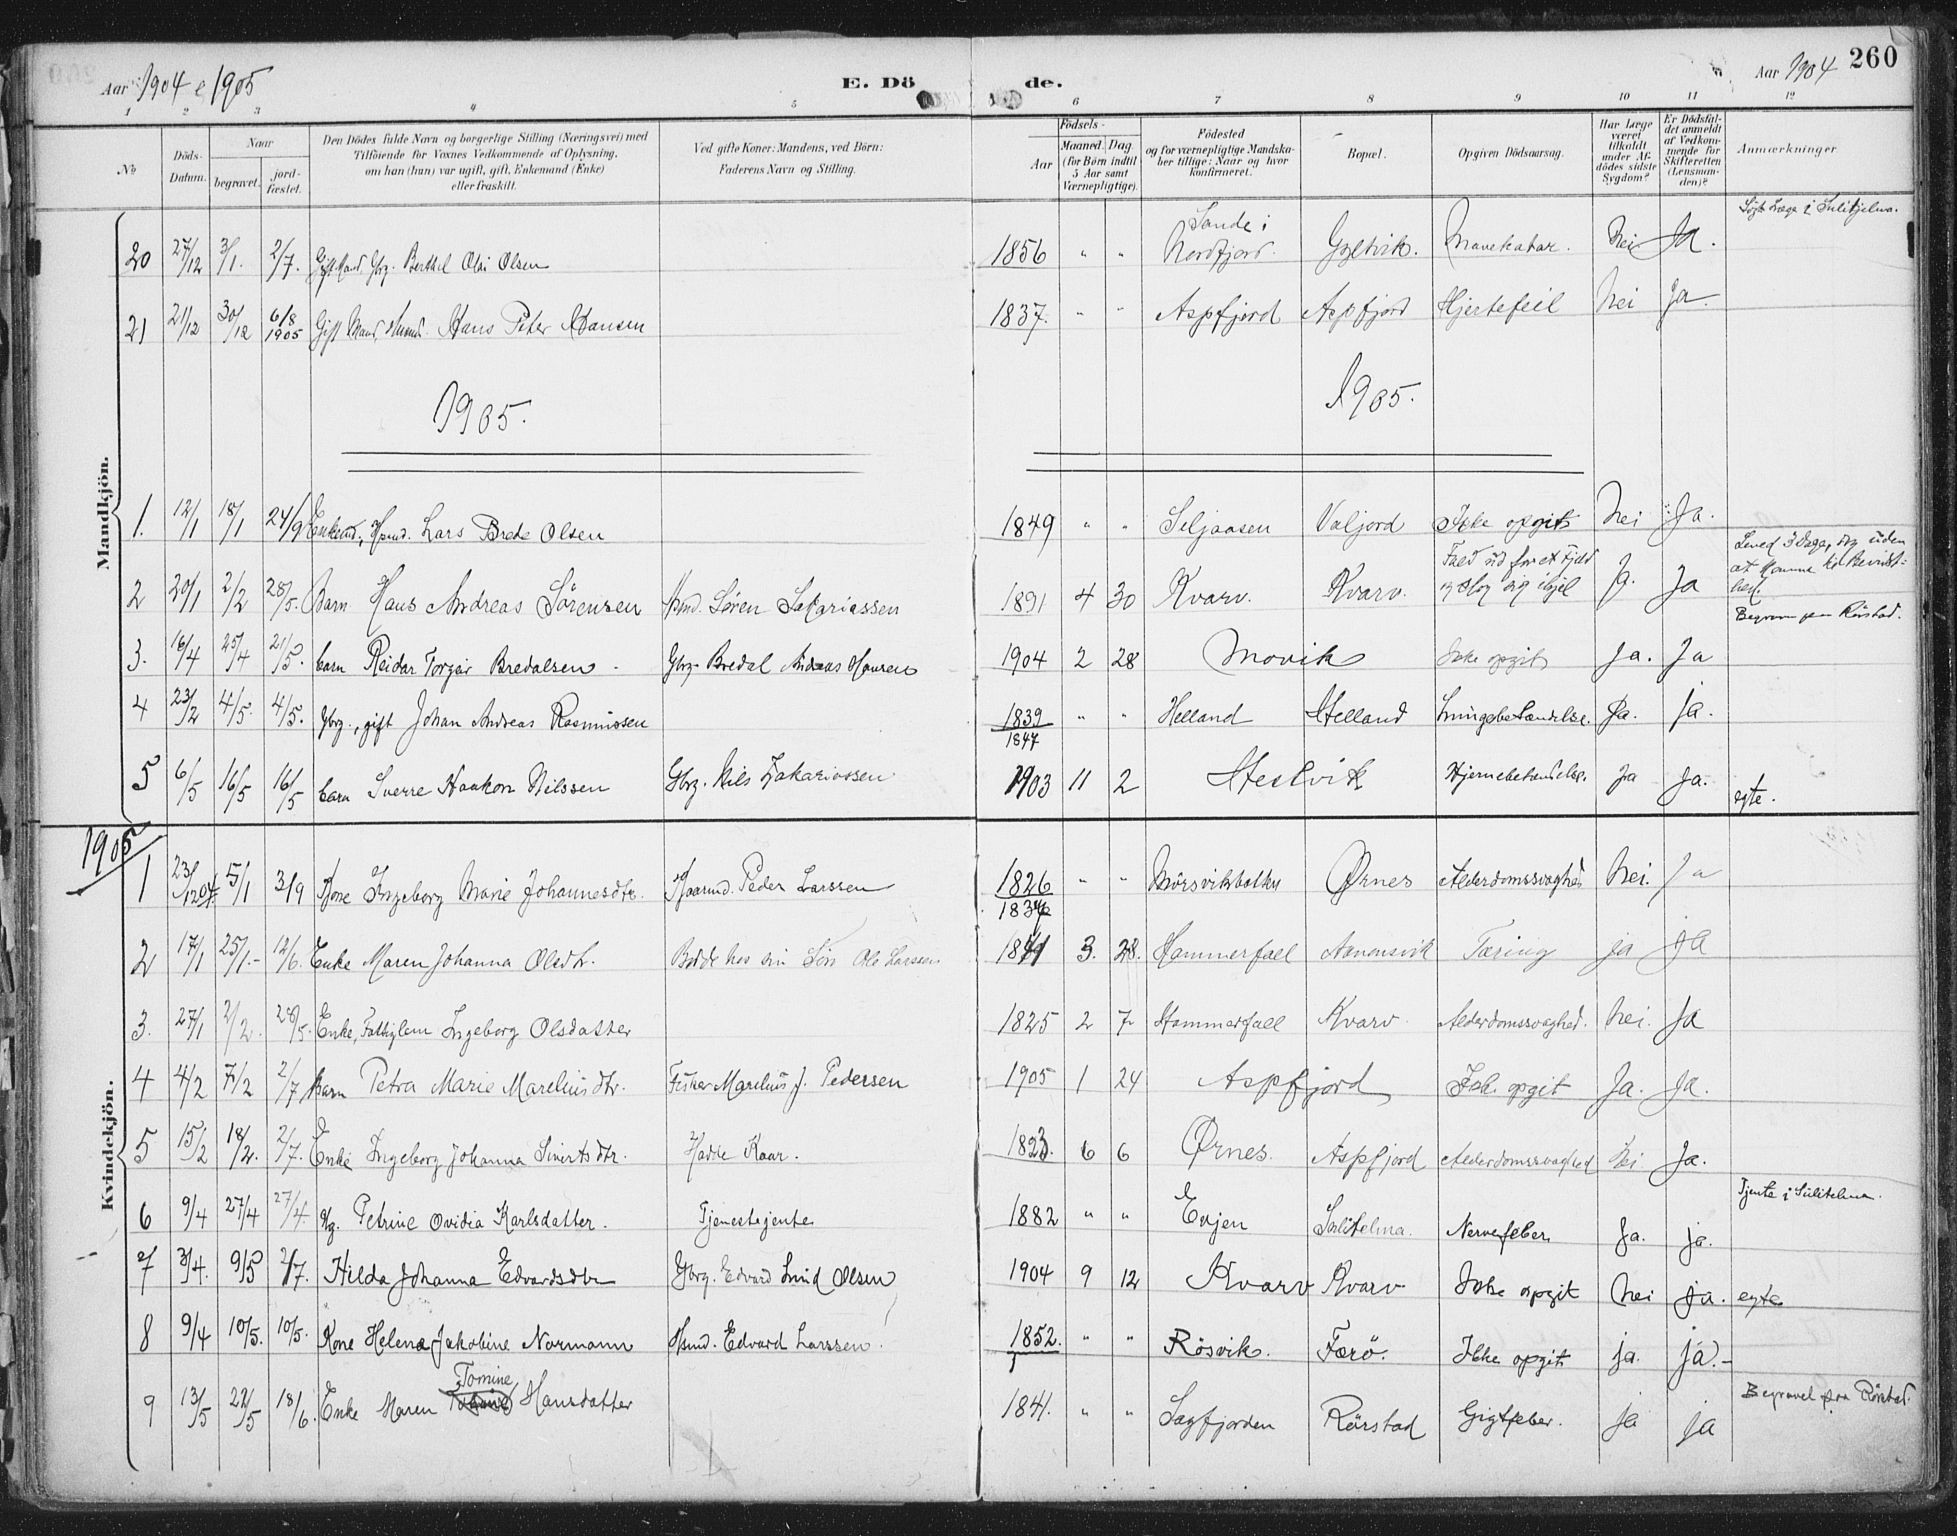 Aar 1904 & 1905 E. Dö de. Aar 1904 260
1 2 3 4 5 6 7 8 9 10 11 12
No.
Döds-Datum.
Naar
begravet.
jord-fæstet.
Den Dödes fulde Navn og borgerlige Stilling (Næringsvei) med
Tilföiende for Voxnes Vedkommende af Oplysning,
om han (hun) var ugift, gift, Enkemand (Enke)
eller fraskilt.
Ved gifte Koner: Mandens, ved Börn:
Faderens Navn og Stilling.
Födsels-
Aar
Maaned. Dag.
(for Börn indtil
5 Aar samt
Værnepligtige).
Födested
og for værnepligtige Mandska-
ber tillige: Naar og hvor
konfirmeret.
Bopæl.
Opgiven Dödsaarsag.
Har Læge
været
tilkaldt
under Af-
dödes sidste
Sygdom?
Er Dödsfal-
det anmeldt
af Vedkom-
mende for
Skifteretten
(Lensman-
den)?
Anmærkninger
Mandkjön.
20 27/12 3/1. 2/7. Gift Mand, Gbrg. Berthel Olai Olsen 1856 " " Sande i Nordfjord. Gyltvik. Mavekatar. Nei Ja. Søgt Læge i Sulitjelma.
21 21/12 30/12 6/8 1905 Gift Mand, Hans Peter Hansen 1837. " " Aspfjord Aspfjord Hjertefeil Nei Ja.
1905. 1905.
1. 12/1 18/1 24/9 Enkemd., Hsmd. Lars Brede Olsen 1849 " " Seljaasen Valjord Ikke opgit Nei Ja.
2 20/1 2/2 28/5. Barn Hans Andreas Sörensen Hsmd. Sören Sakariassen 1891 4 30 Kvarv. Kvarv. Fald ud for et Fjeld og slog sig ihjel Ja. Ja Leved 3 Dage, dog uden at komme til Bevidst-hed. Begravn paa Rörstad.
3. 16/4 25/4 21/5. barn Reidar Torgeir Bredalsen Gbrg. Bredal Andreas Hansen 1904 2 28 Movik Ikke opgit Ja. Ja
4 23/2 4/5. 4/5. Gbrg., gift Johan Andreas Rasmussen 1839 1847 " " Helland Helland Lungebetændelse. Ja. ja.
5 6/5 16/5 16/5 barn Sverre Haakon Nilssen Gbrg. Nils Zakariassen 1903 11 2 Hestvik Hjernebetændelse. ja ja. egte.
Kvindekjön.
1905
1 23/12 04. 5/1 3/9 Kone Ingeborg Marie Johannesdtr. Kaarmd. Peder Larssen 1826 1834 " " Mörsviksbotten Ørnes Alderdomssvaghed Nei. Ja
2 17/1 25/1.- 12/6. Enke Maren Johanna Olsdtr. Bodde hos sin Sön Ole Larssen 1841 3. 28. Hammerfall Tæring ja ja
3. 27/1 2/2. 28/5. Enke, Fattiglem Ingeborg Olsdatter 1825 2 7 Hammerfall Kvarv. Alderdomssvaghed. Nei. Ja
4 4/2 7/2 2/7 Barn Petra Marie Mareliusdtr. Fisker Marelius J. Pedersen 1905 1 24 Aspfjord Ikke opgit Ja. Ja.
5 15/2 18/2. 2/7. Enke Ingeborg Johanna Sivertsdtr. Hadde Kaar. 1823. 6 6 Ørnes. Aspfjord Alderdomssvaghed Nei Ja.
6 9/4 27/4 27/4. Petrine Ovidia Karlsdatter. Tjenestejente 1882 " " Evjen Sulitelma. Nervefeber. Ja. ja. Tjente i Sulitelma.
7 3/4. 9/5 2/7. Hilda Johanna Edvardsdtr Gbrg. Edvard Emil Olsen 1904 9 12 Kvarv Kvarv Ikke opgit Nei ja. egte
8 9/4 10/5. 10/5. Kone Helena Jakobine Normann Hsmd. Edvard Larssen. 1852. " " Rösvik. Færö. Ikke opgit ja. ja.-
9 13/5 22/5 18/6. Enke Maren Tomine Hansdatter 1841. " " Sagfjorden Rörstad Gigtfeber. ja ja Begravel paa Rörstad